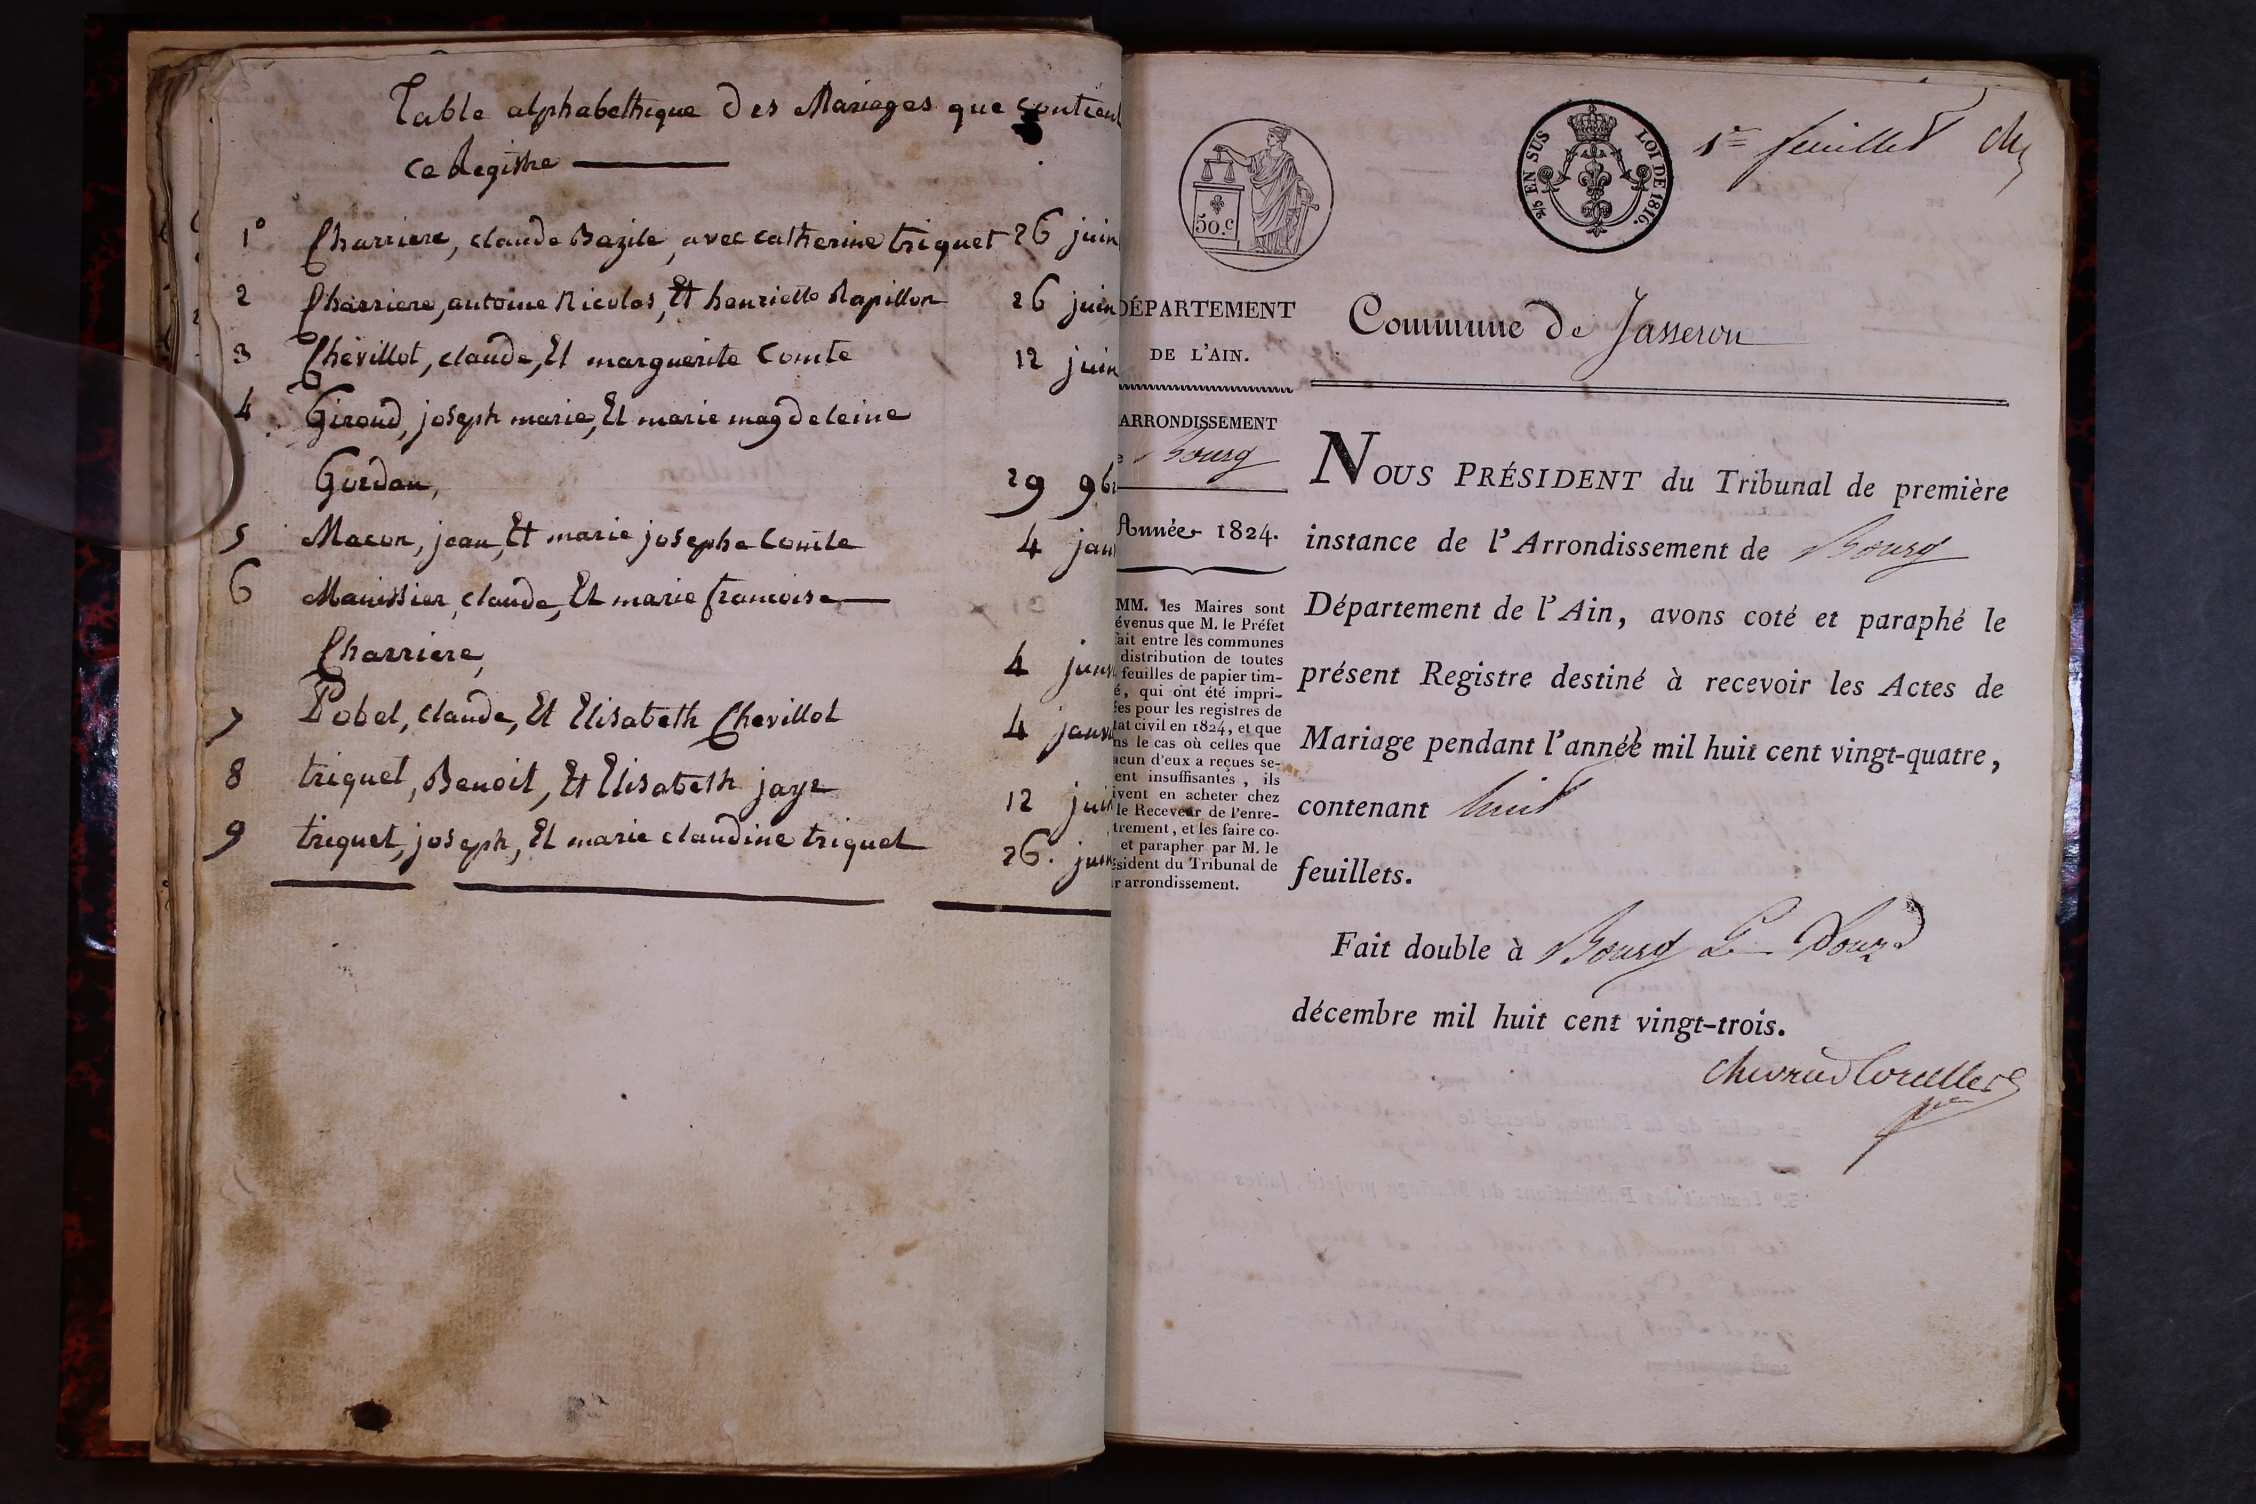 Table alphabethique des Mariages que contient
ce Registre
1° Charriere, claude Bazile, avec catherine triquet 26 juin
2 Charriere, antoine Nicolas, Et henriette Rapillon 26 juin
3 Chevillot, claude, Et marguerite Comte 12 juin
4 Giroud, joseph marie, Et marie magdeleine
Gordan, 29 9b
5 Macon, jean, Et marie josephe Comte 4 jan
6 Manissier, claude, Et marie francoise
Charriere, 4 janv
7 Pobel, claude, Et Elisabeth Chevillot 4 janv
8 triquet, Benoit, Et Elisabeth jayr 12 juin
9 triquet, joseph, Et marie claudine triquet 26. juin
50.c
2/5 EN SUS LOI DE 1816.
1er feuillet
DÉPARTEMENT
DE L'AIN.
ARRONDISSEMENT
Bourg
Année 1824.
MM. les Maires sont
évenus que M. le Préfet
fait entre les communes
distribution de toutes
feuilles de papier tim-
é, qui ont été impri-
ées pour les registres de
tat civil en 1824, et que
ns le cas où celles que
acun d'eux a reçues se-
ent insuffisantes, ils
ivent en acheter chez
le Receveur de l'enre-
trement, et les faire co-
et parapher par M. le
ésident du Tribunal de
r arrondissement.
Commune de Jasseron
NOUS PRÉSIDENT du Tribunal de première
instance de l'Arrondissement de Bourg
Département de l'Ain, avons coté et paraphé le
présent Registre destiné à recevoir les Actes de
Mariage pendant l'année mil huit cent vingt-quatre,
contenant huit
feuillets.
Fait double à Bourg Le Douze
décembre mil huit cent vingt-trois.